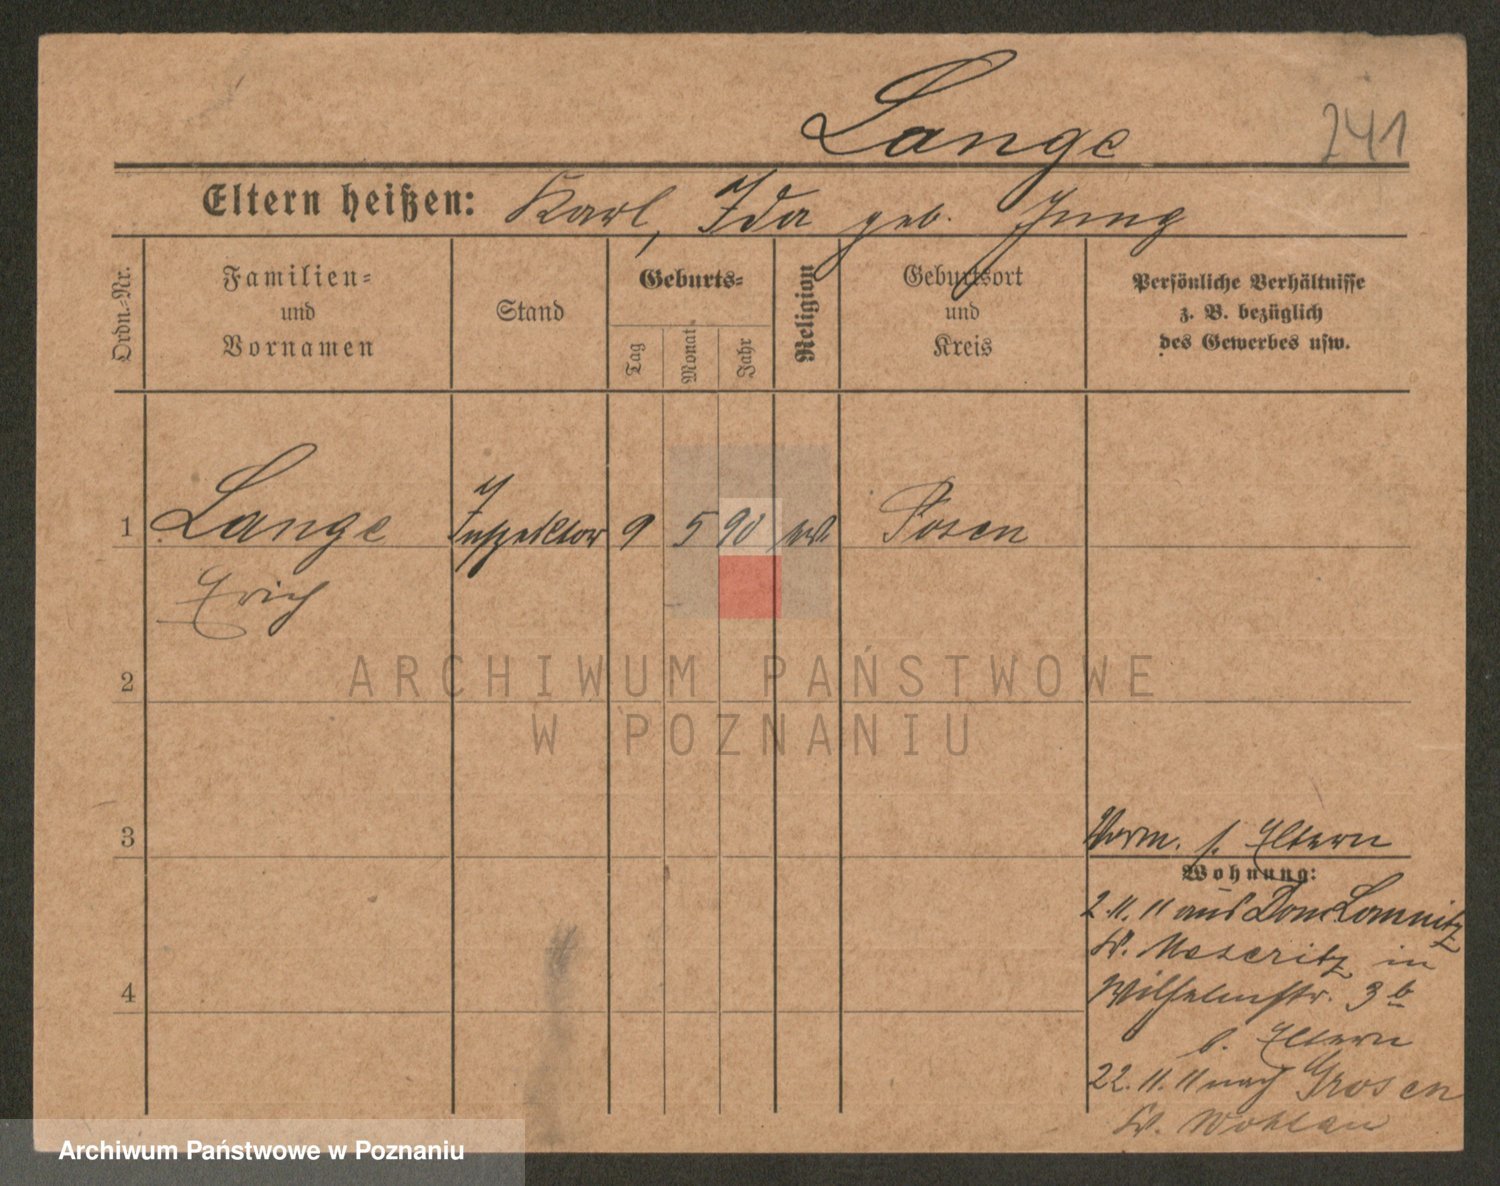 Lange
241
Eltern heißen: Karl, Ida geb. Jung
Ordn.-Nr.
Familien-
und
Vornamen
Stand
Geburts-
Tag
Monat
Jahr
Religion
Geburtsort
und
Kreis
Persönliche Verhältnisse
z. B. bezüglich
des Gewerbes usw.
1 Lange Inspektor 9 5 90 Posen
Erich
2
3
4
Verm. s. Eltern
Wohnung:
2.11.11 aus Dom. Lomnitz
Kr. Meseritz in
Wilhelmstr. 3b
b. Eltern
22.11.11 nach Grosen
Kr. Wohlau
ARCHIWUM PAŃSTWOWE
W POZNANIU
Archiwum Państwowe w Poznaniu